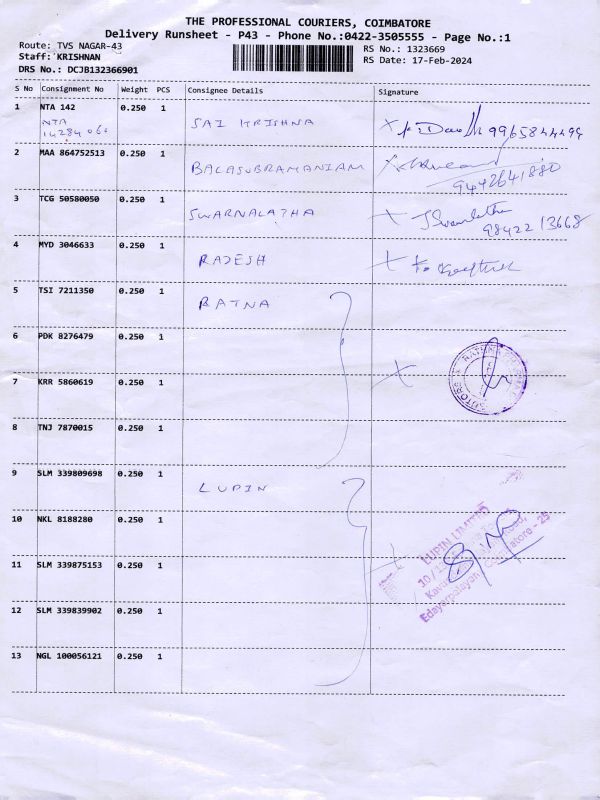 THE PROFESSIONAL COURIERS, COIMBATORE
Delivery Runsheet - P43 - Phone No.:0422-3505555 - Page No.:1
Route: TVS NAGAR-43
Staff: KRISHNAN
DRS No.: DCJB132366901
RS No.: 1323669
RS Date: 17-Feb-2024
S No Consignment No Weight PCS Consignee Details Signature
1 NTA 142 0.250 1 SAI KRISHNA 9965844499
NTA
2 MAA 864752513 0.250 1 BALASUBRAMANIAM
9442641880
3 TCG 50580050 0.250 1 SWARNALATHA
98422 13668
4 MYD 3046633 0.250 1 RAJESH
5 TSI 7211350 0.250 1 RATNA
6 PDK 8276479 0.250 1
7 KRR 5860619 0.250 1
8 TNJ 7870015 0.250 1
9 SLM 339809698 0.250 1 LUPIN
10 NKL 8188280 0.250 1
11 SLM 339875153 0.250 1
12 SLM 339839902 0.250 1
13 NGL 100056121 0.250 1
LUPIN LIMITED
Edayarpalayam, Coimbatore - 25